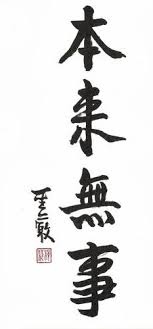 本来無事
聖嚴